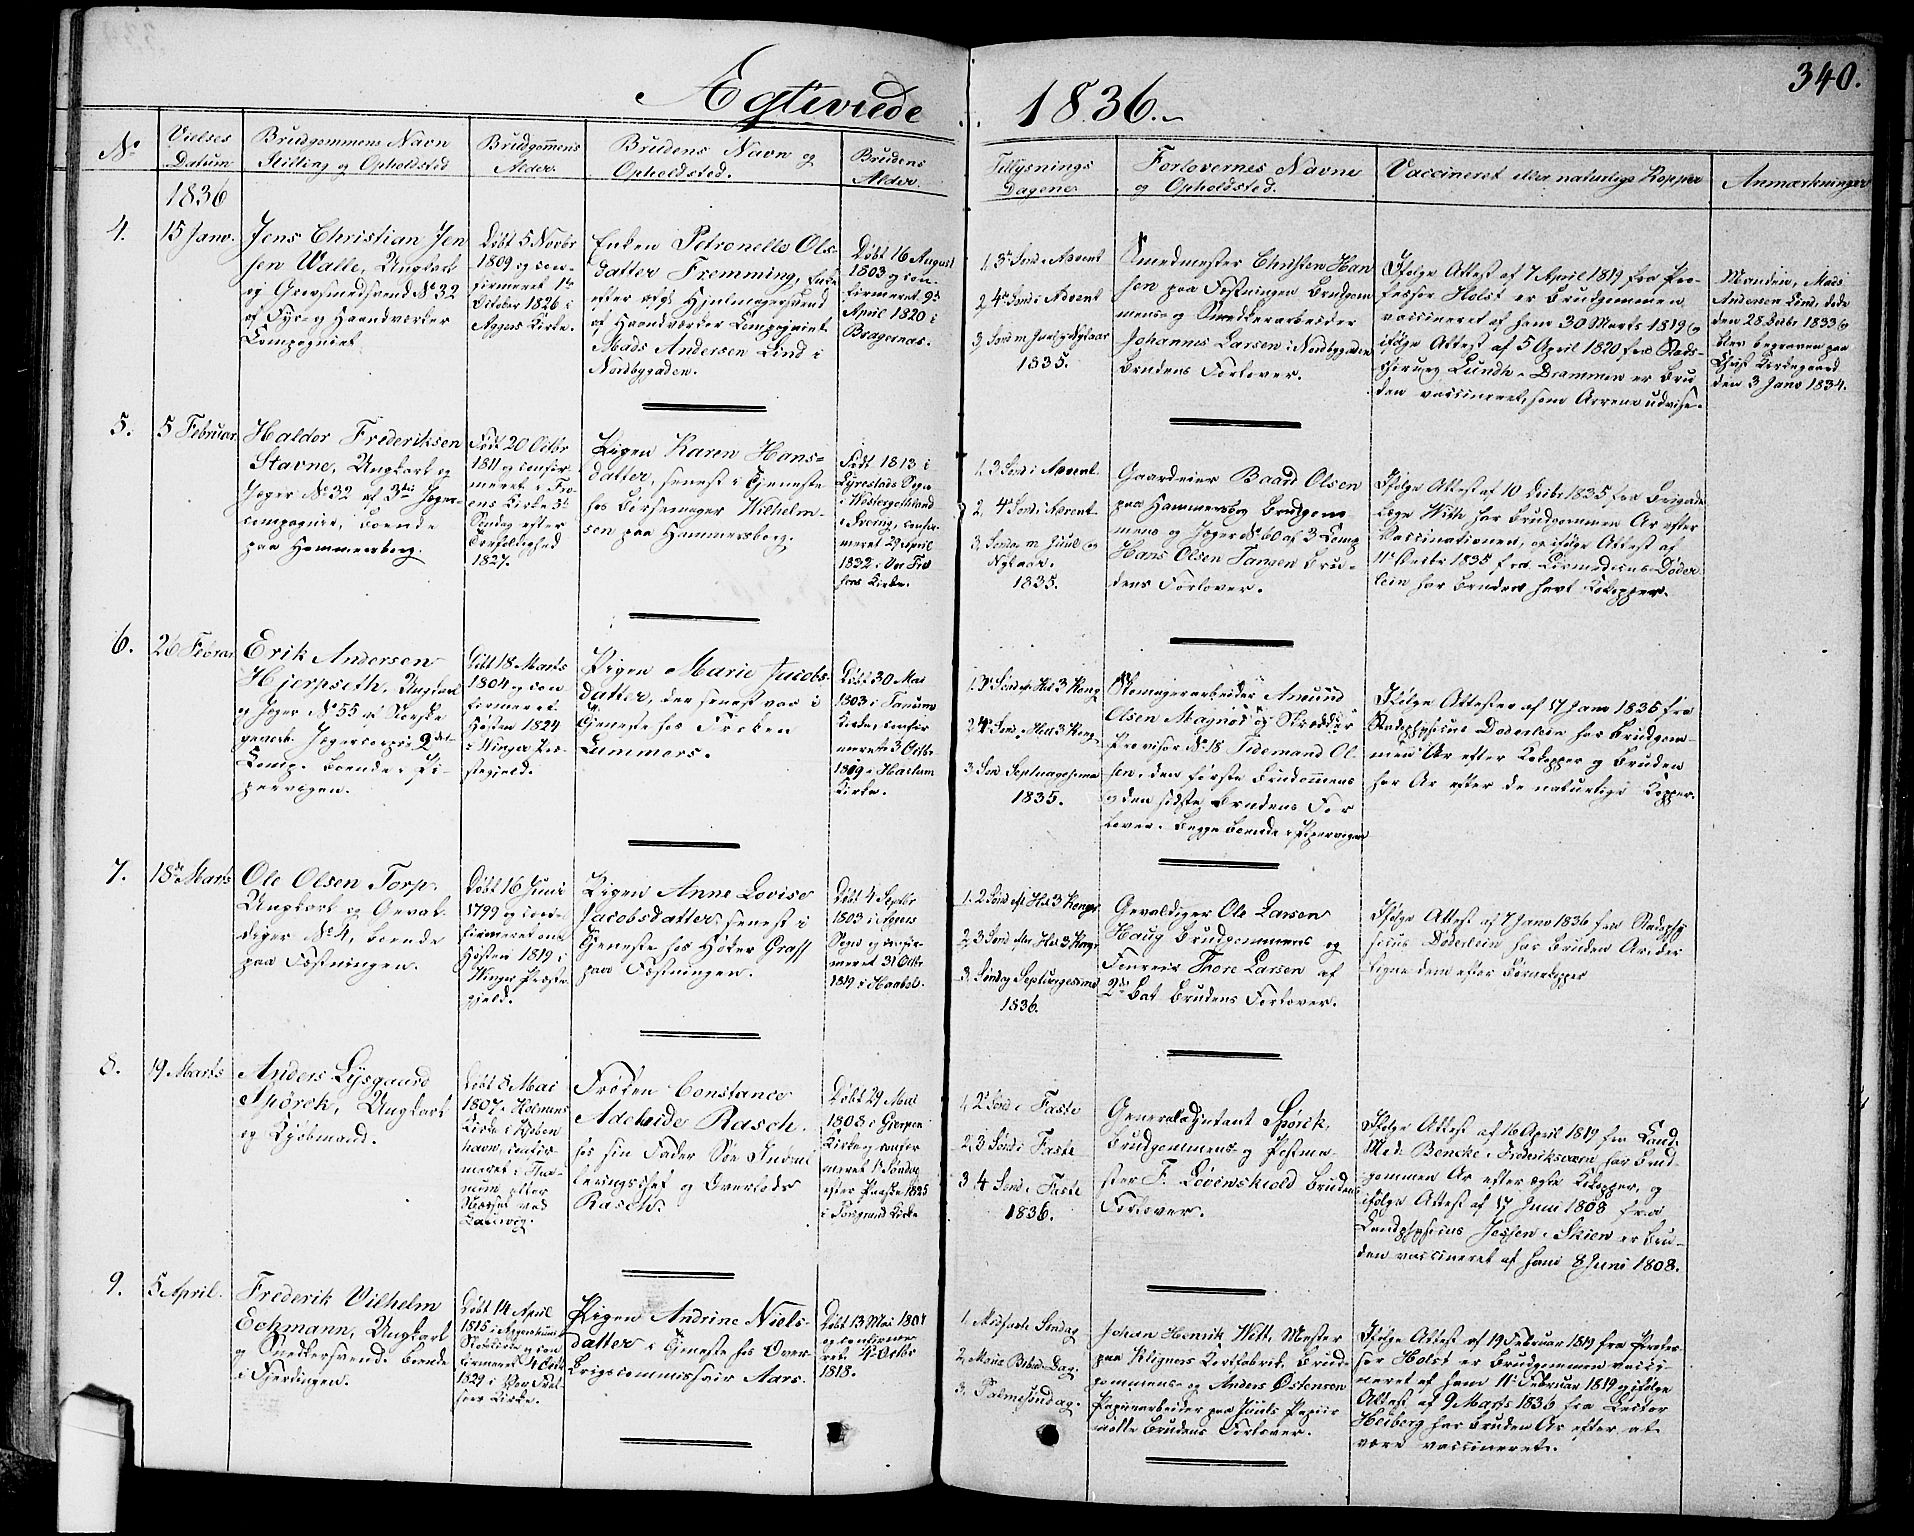 340.
Ægteviede 1836.
No
Vielses Datum
Brudgommens Navn
Stilling og Opholdsted
Brudgommens Alder.
Brudens Navn og
Opholdsted.
Brudens Alder.
Tillysnings Dagene
Forlovernes Navne
og Opholdsted.
Vaccineret eller naturlige Kopper
Anmærkninger
1836
4.
15 Janv.
Jens Christian Jen
sen Walle, Ungkarl
og Grovsmedsvend No 32
af Fyr- og Haandværker
Compagniet
Døbt 5 Novbr
1809 og con-
firmeret 1ste
October 1826 i
Aggers Kirke.
Enken Petronelle Ols-
datter Fremming, Enke
efter afg. Hjulmagersvend
af Haandværker Compagniet
Mads Andersen Lind i
Nordbygaden.
Døbt 16 August
1803 og con
firmeret 9de
April 1820 i
Bragernæs.
1. 3 Sønd i Advent
2. 4de Sønd i Advent
3. Sønd m Juul og Nytaar
1835.
Smedmester Christen Han
sen paa Fæstningen Brudgom
mens og Snedkerarbeider
Johannes Larsen i Nordbygaden
Brudens Forlover.
Ifølge Attest af 7 April 1819 fra Pro-
fessor Holst er Brudgommen
vaccineret af ham 30 Marts 1819 og
ifølge Attest af 5 April 1820 fra Stads-
chirurg Lundh i Drammen er Bru
den vaccineret, som Arrene udvise.
Manden, Mads
Andersen Lind, døde
den 28 Decbr 1833 og
blev begraven paa
Christ Kirkegaard
den 3 Janv 1834.
5.
5 Februar
Haldor Frederiksen
Stavne, Ungkarl og
Jæger No 32 af 3die Jæger-
compagnie, boende
paa Hammersborg.
Født 20 Octbr
1811 og confir-
meret i Tro-
ens Kirke 5te
Søndag efter
Trefoldighed
1827.
Pigen Karen Hans-
datter, senest i Tjeneste
hos Børsemager Wilhelm-
sen paa Hammersborg.
Født 1813 i
Sogn
i Westergothland
i Sverrig, confir-
meret 29 April
1832 i Vor Frel
sers Kirke.
1. 3 Sønd i Advent
2. 4 Sønd i Advent
3. Sønda m Juul og
Nytaar.
1835.
Gaardeier Baard Olsen
paa Hammersbog Brudgom
mens og Jæger No 60 af 3 Comp
Hans Olsen Tangen Bru-
dens Forlover.
Ifølge Attest af 10 Decbr 1835 fra Brigade
læge With har Brudgommen Ar efter
Vaccinationen, og ifølge Attest af
11 Decbr 1835 fra Døder
lein har Bruden havt Kokopper.
6.
26 Febrar
Erik Andersen
Hjerpseth, Ungkarl
og Jæger No 55 ved Norske
Jægercorps 2det
Comp. boende i Pi-
pervigen.
Født 18 Marts
1804 og con
firmeret
Høsten 1824
i Winger Præ-
stegjeld.
Pigen Marie Jacobs-
datter, der senest var i
Tjeneste hos Frøken
Lummers.
Døbt 30 Mai
1803 i Tanum
Kirke, confir
meret 3 Octbr
1819 i Haslum
Kirke.
1. 3 Sønd ef Hel 3 Kong
2. 4de Sønd e Hel 3 Kong
3. Sønd Septuagesima
1835.
Skomagerarbeider Amund
Olsen Magnøs og Skrædder
Provisor No 18 Tidemand Ol-
sen, den første Brudgommens
og den sidste Brudens For
lover. Begge boende i Pipervigen
Ifølge Attester af 17 Janv 1836 fra
Stadsphysicus Døderlein har Brudgom-
men Ar efter Kokopper og Bruden
har Ar efter de naturlige Kopper.
7.
18de Marts
Ole Olsen Torp.
Ungkarl og Geval-
diger No 4, boende
paa Fæstningen.
Døbt 16 Juni
1799 og con-
firmeret om
Høsten 1819 i
Winger Præste
gjeld.
Pigen Anne Lovise
Jacobsdatter, senest i
Tjeneste hos Høker Graff
paa Fæstningen.
Døbt 4 Septbr
1803 i Aggers
Sogn og confir-
meret 31 Octbr
1819 i Haabøl.
1. 2 Sønd ef Hel 3 Konger
2. 3 Sønd efter Hel 3 Kongr
3. Søndag Septuagesima
1836.
Gevaldiger Ole Larsen
Haug Brudgommens og
Foureer Thore Larsen af
2den Bat Brudens Forlover.
Ifølge Attest af 7 Janv 1836 fra Stadsphy
sicus Døderlein har Bruden Ar, der
ligne dem efter Børnekopper
8.
19 Marts
Anders Lysgaard
Spørck, Ungkarl
og Kjøbmand.
Døbt 8 Mai
1807 i Holmens
Kirke i Kjøben
havn, confir-
meret i Tha-
num efter
ved
Laurvig.
Frøken Constance
Adelaide Rasch.
hos sin Fader Søe Indrul
leringschef og Overlods
Rasch.
Døbt 29 Mai
1808 i Gjerpen
Kirke og confir
meret 1ste Søndag
efter Paaske 1825
i Porsgrund Kirke
1. 2 Sønd i Faste
2. 3 Sønd i Faste
3. 4 Sønd i Faste
1836.
Generaladjutant Spørck,
Brudgommens og Postme-
ster F. Løvenskiold Brudens
Forlover.
Ifølge Attest af 16 April 1819 fra Cand.
Med. Bencke i Frederiksværn har Brud
gommen Ar efter ægte Kokopper, og
ifølge Attest af 17 Juni 1808 fra
Landphysicus Jessen i Skien er Bru-
den vaccineret af ham 8 Juni 1808.
9.
5 April.
Frederik Vilhelm
Echmann, Ungkarl
og Snedkersvend. boende
i Fjerdingen.
Døbt 14 April
1815 i Aggershuus
Slotskirke og con
firmeret 4 Octbr
1829 i Vor Frel
sers Kirke.
Pigen Andrine Niels-
datter i Tjeneste hos Over
krigscommissair Aars.
Døbt 13 Mai 1801
og confirme-
ret 4 Octbr
1818.
1. Midfaste Søndag
2. Mariæ Bebud. Dag
3. Palmesøndag.
Johan Henrik Witt, Mester
paa Kligners Kortfabrik, Brud
gommens og Anders Østensen
Papirarbeider paa Juuls Papiir
mølle Brudens Forlover.
Ifølge Attest af 19 Februar 1819 fra Profes-
sor Holst er Brudgommen vacci-
neret af ham 11 Februar 1819 og ifølge
Attest af 9 Marts 1836 fra Lector
Heiberg har Bruden Ar efter at
være vaccineret.